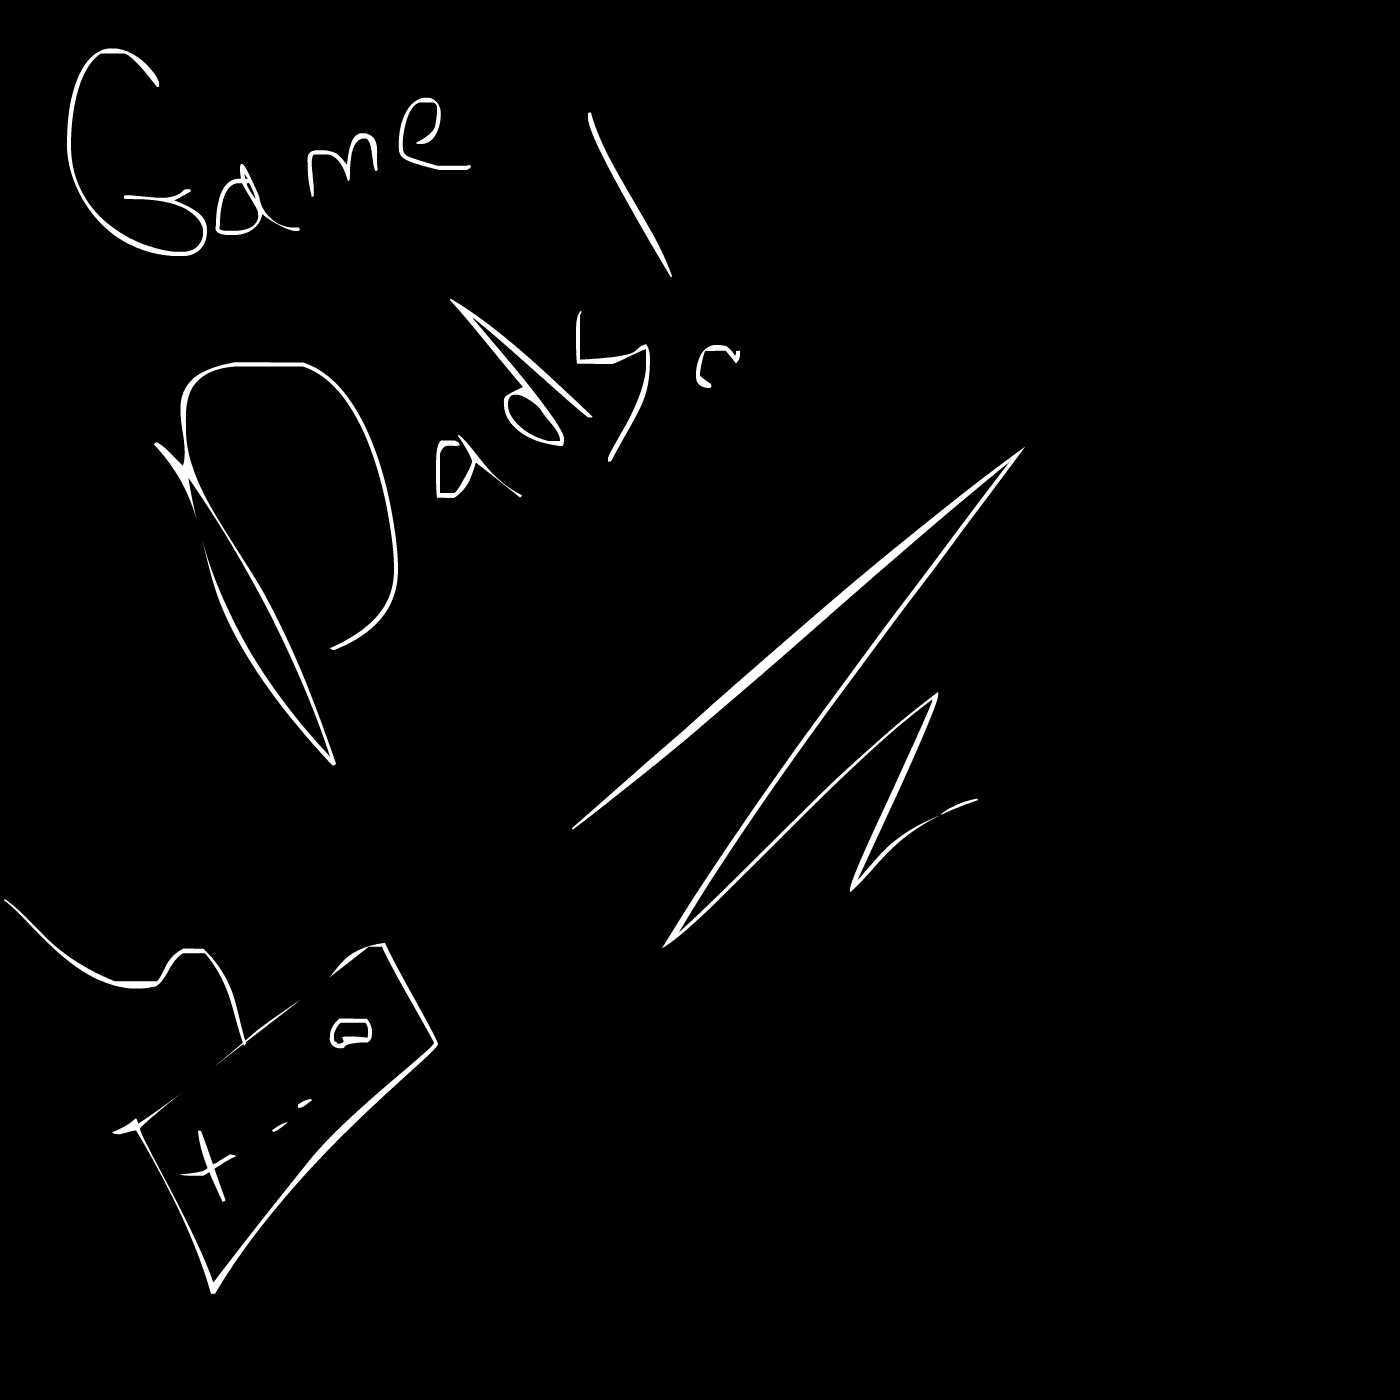 Game
Pads!